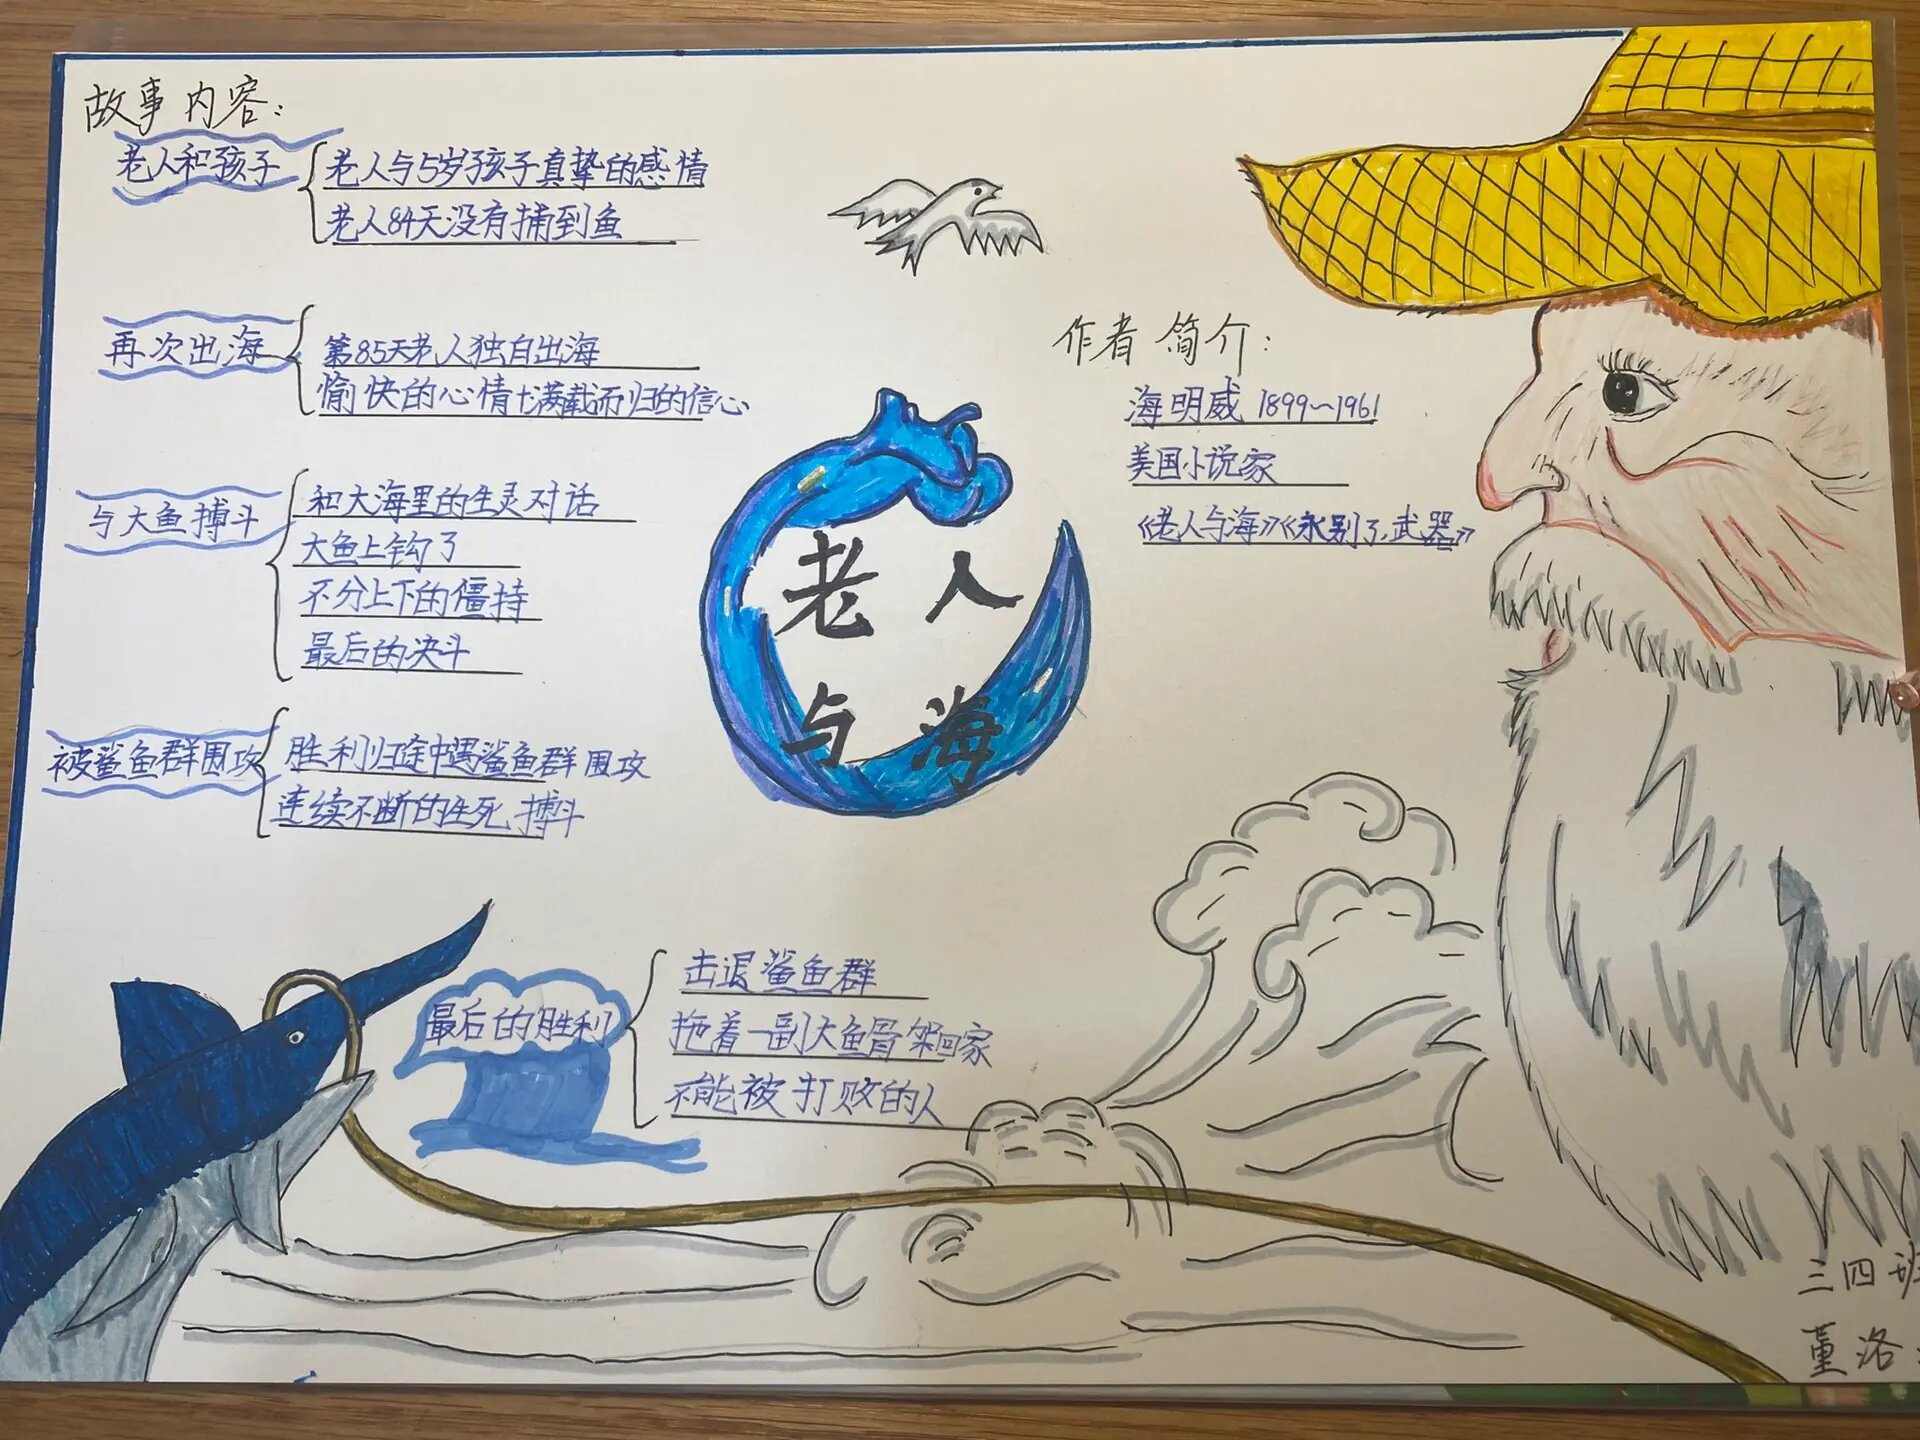 故事内容:
老人和孩子
老人与5岁孩子真挚的感情
老人84天没有捕到鱼
再次出海
第85天老人独自出海
愉快的心情+满载而归的信心
与大鱼搏斗
和大海里的生灵对话
大鱼上钩了
不分上下的僵持
最后的决斗
被鲨鱼群围攻
胜利归途中遇鲨鱼群围攻
连续不断的生死搏斗
最后的胜利
击退鲨鱼群
拖着一副大鱼骨架回家
不能被打败的人
老人
与海
作者简介:
海明威 1899~1961
美国小说家
《老人与海》《永别了,武器》
三四班
董洛